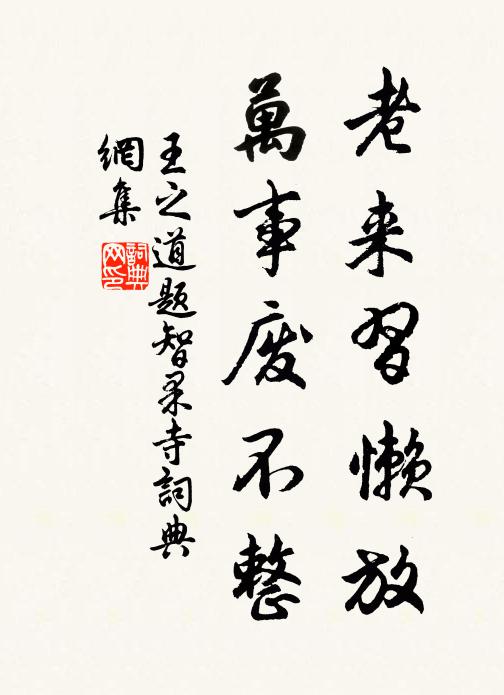 老来習懶放
萬事废不整
王之道題智果寺詞典
網集
詞典
网印